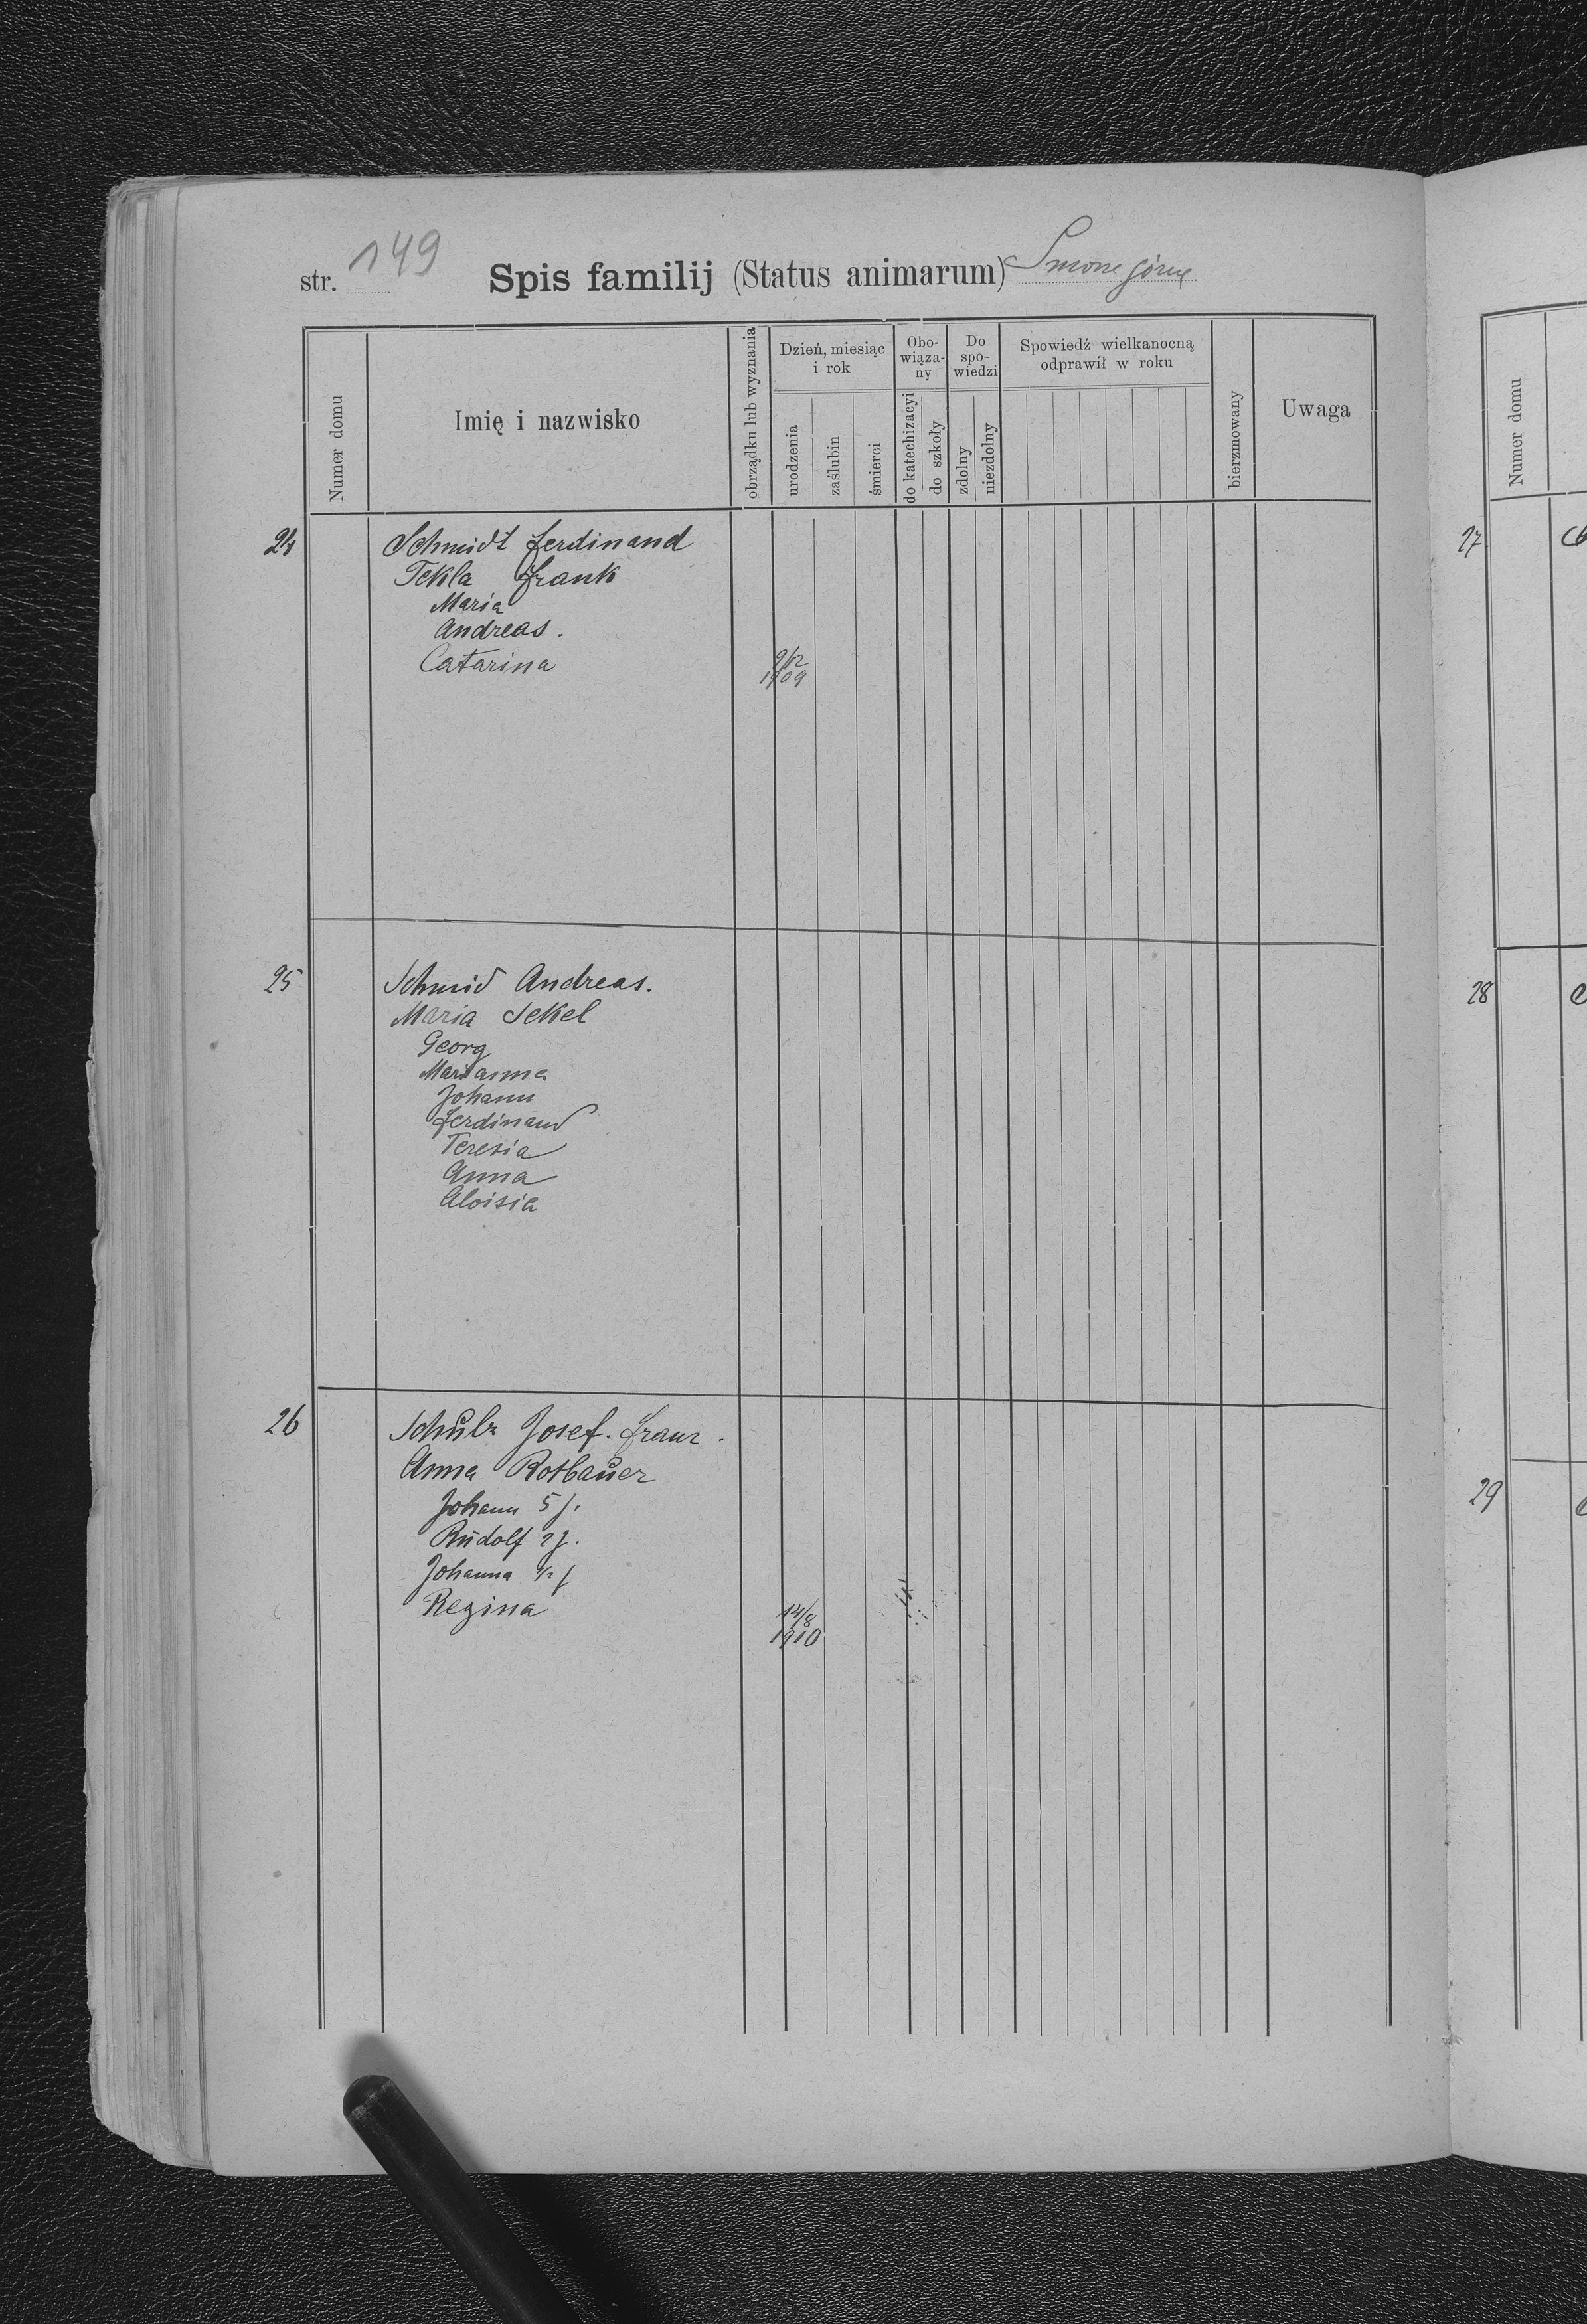 str. 149 Spis familij (Status animarum) Smorze górne
Numer domu
Imię i nazwisko
obrządku lub wyznania
Dzień, miesiąc
i rok
urodzenia
zaślubin
śmierci
Obo-
wiąza-
ny
do katechizacyi
do szkoły
Do
spo-
wiedzi
zdolny
niezdolny
Spowiedź wielkanocną
odprawił w roku
bierzmowany
Uwaga
24 Schmidt Ferdinand
Tekla Frank
Maria
Andreas.
Catarina 9/12
1909
25 Schmid Andreas.
Maria Sekel
Georg
Marianna
Johann
Ferdinand
Teresia
Anna
Aloisia
26 Schulz Josef. Franz.
Anna Rotbauer
Johann 5 J.
Rudolf 2 J.
Johanna 1/2 J
Regina 14/8
1910
Numer domu
27
28
29